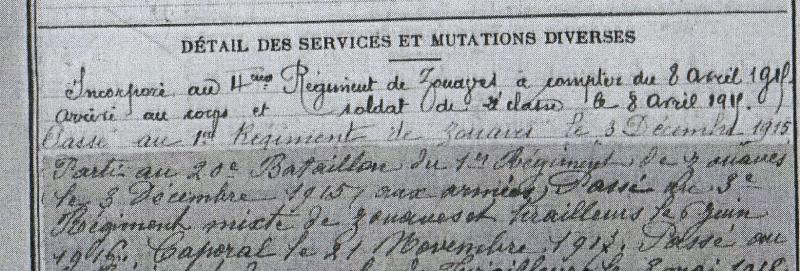 DÉTAIL DES SERVICES ET MUTATIONS DIVERSES
Incorporé au 4ème Régiment de Zouaves à compter du 8 Avril 1915
arrivé au corps et soldat de 2e classe le 8 avril 1915.
Passé au 1er Régiment de Zouaves le 3 Décembre 1915
Parti au 20e Bataillon du 1er Régiment de Zouaves
le 3 Décembre 1915 aux armées, Passé au 3e
Régiment mixte de Zouaves et tirailleurs le 6 juin
1916. Caporal le 21 Novembre Passé au